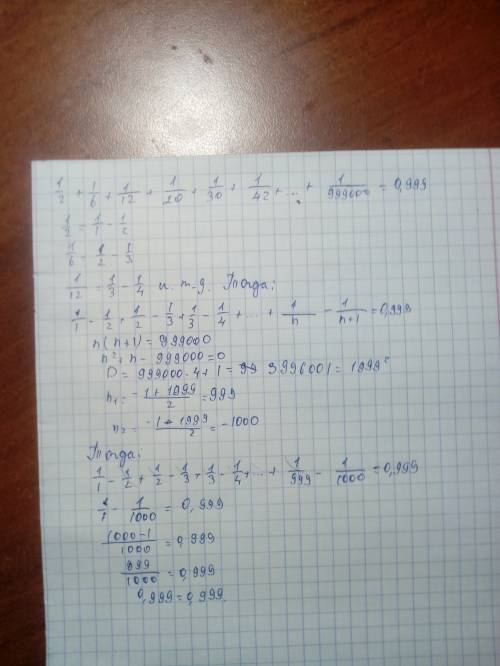 1/2 + 1/6 + 1/12 + 1/20 + 1/30 + 1/42 + ... + 1/999000 = 0,999
1/2 = 1/1 - 1/2
1/6 = 1/2 - 1/3
1/12 = 1/3 - 1/4 и т-д. Тогда:
1/1 - 1/2 + 1/2 - 1/3 + 1/3 - 1/4 + ... + 1/n - 1/(n+1) = 0,999
n(n+1) = 999000
n² + n - 999000 = 0
D = 999000·4 + 1 = 3996001 = 1999²
n₁ = (-1 + 1999)/2 = 999
n₂ = (-1 - 1999)/2 = -1000
Тогда:
1/1 - 1/2 + 1/2 - 1/3 + 1/3 - 1/4 + ... + 1/999 - 1/1000 = 0,999
1/1 - 1/1000 = 0,999
(1000-1)/1000 = 0,999
999/1000 = 0,999
0,999 = 0,999.